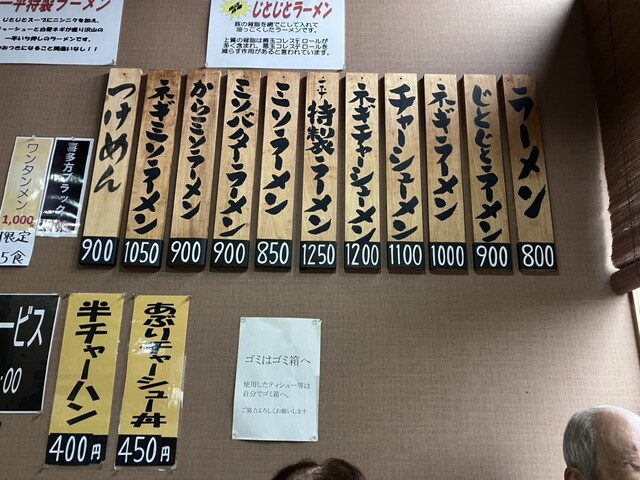 一平特製ラーメン
じとじとスープにニンニクを加え、
チャーシューと白髪ネギが盛り沢山の
一平いち押しのラーメンです。
やみつきになること間違いなし!!
じとじとラーメン
豚の背脂を網でこして入れて
油っこくしたラーメンです。
上質の背脂は善玉コレステロールが
多く含まれ、悪玉コレステロールを
減らす作用があると言われています。
ラーメン
800
じとじとラーメン
900
ネギラーメン
1000
チャーシューメン
1100
ネギチャーシューメン
1200
一平特製ラーメン
1250
ミソラーメン
850
ミソバターラーメン
900
からミソラーメン
900
ネギミソラーメン
1050
つけめん
900
喜多方ブラック
ワンタンメン
1,000
限定
5食
ービス
:00
半チャーハン
400円
あぶりチャーシュー丼
450円
ゴミはゴミ箱へ
使用したティシュー等は
自分でゴミ箱へ。
ご協力よろしくお願いします